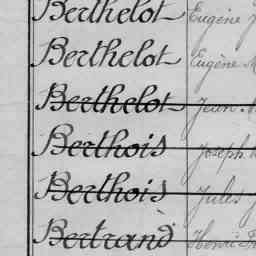 Berthelot Eugène
Berthelot Eugène
Berthelot Jean
Berthois Joseph
Berthois Jules
Bertrand Henri